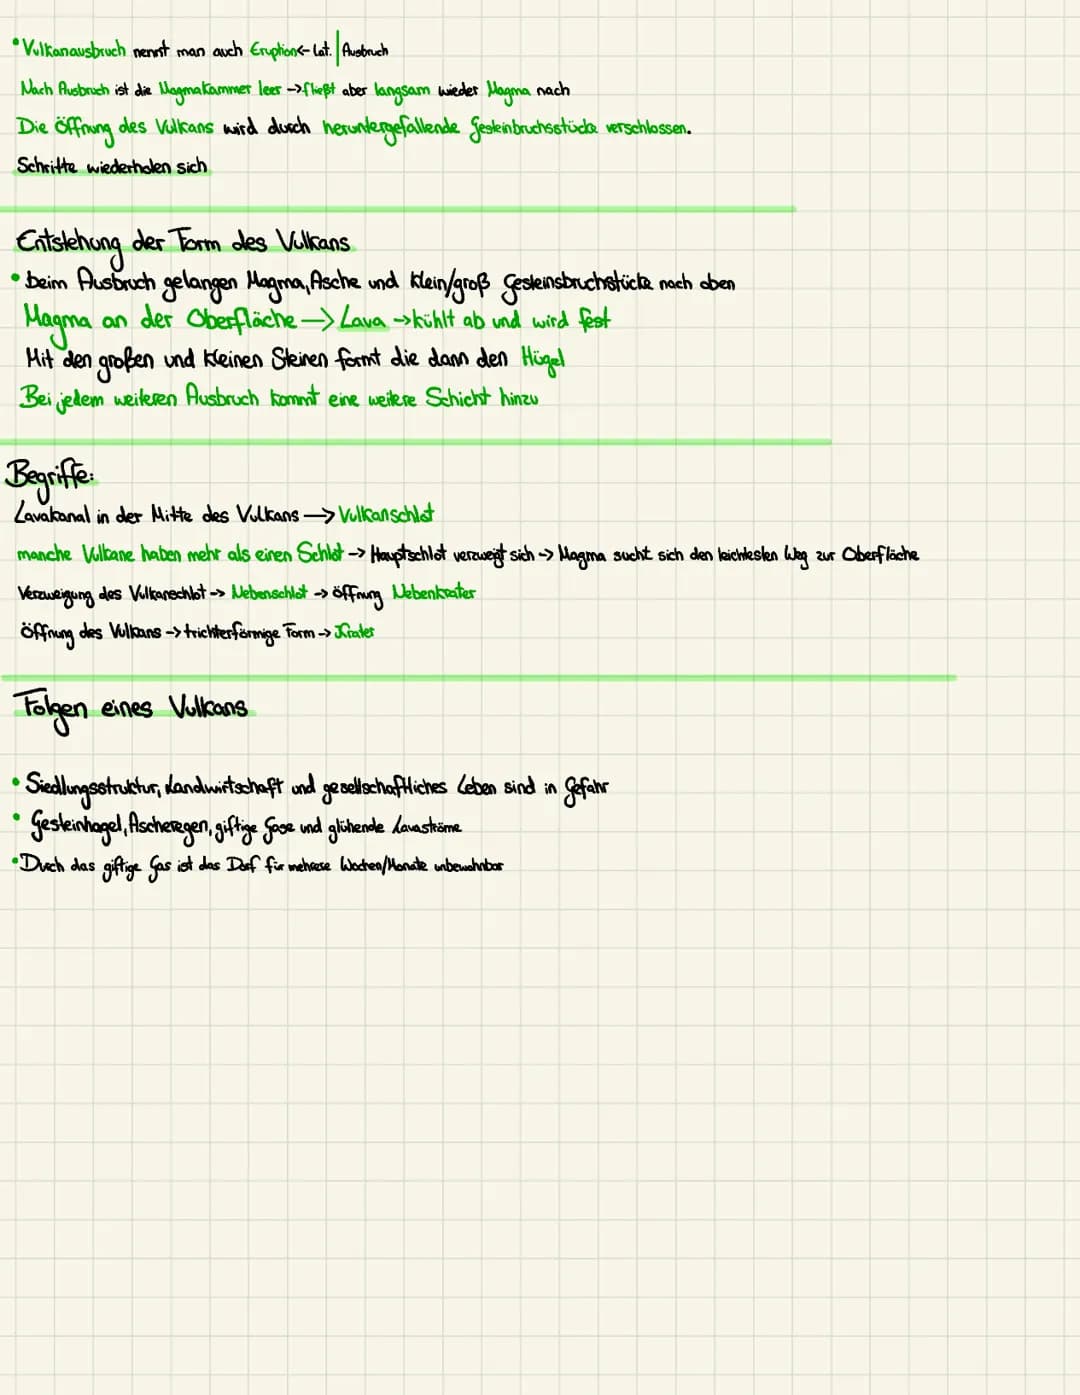 • Vulkanausbruch nennt man auch Eruption <- Lat. | Ausbruch
Nach Ausbruch ist die Magmakammer leer -> fließt aber langsam wieder Magma nach
Die Öffnung des Vulkans wird durch heruntergefallende Gesteinbruchsstücke verschlossen.
Schritte wiederholen sich
Entstehung der Form des Vulkans
• beim Ausbruch gelangen Magma, Asche und klein/groß Gesteinsbruchstücke nach oben
Magma an der Oberfläche -> Lava -> kühlt ab und wird fest
Mit den großen und kleinen Steinen formt die dann den Hügel
Bei jedem weiteren Ausbruch kommt eine weitere Schicht hinzu
Begriffe:
Lavakanal in der Mitte des Vulkans -> Vulkanschlot
manche Vulkane haben mehr als einen Schlot -> Hauptschlot verzweigt sich -> Magma sucht sich den leichtesten Weg zur Oberfläche
Verzweigung des Vulkanschlot -> Nebenschlot -> öffnung Nebenkrater
Öffnung des Vulkans -> trichterförmige Form -> Krater
Folgen eines Vulkans
• Siedlungsstruktur, Landwirtschaft und gesellschaftliches Leben sind in Gefahr
• Gesteinhagel, Ascheregen, giftige Gase und glühende Lavaströme
• Durch das giftige Gas ist das Dorf für mehrere Wochen/Monate unbewohnbar